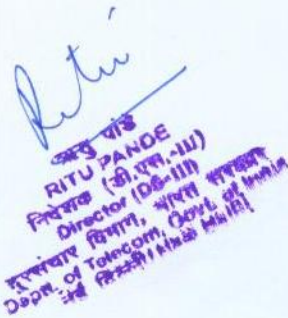 Ritu
ऋतु पांडे
RITU PANDE
निदेशक (डी.एस.-III)
Director (DS-III)
दूरसंचार विभाग, भारत सरकार
Deptt. of Telecom, Govt. of India
नई दिल्ली / New Delhi